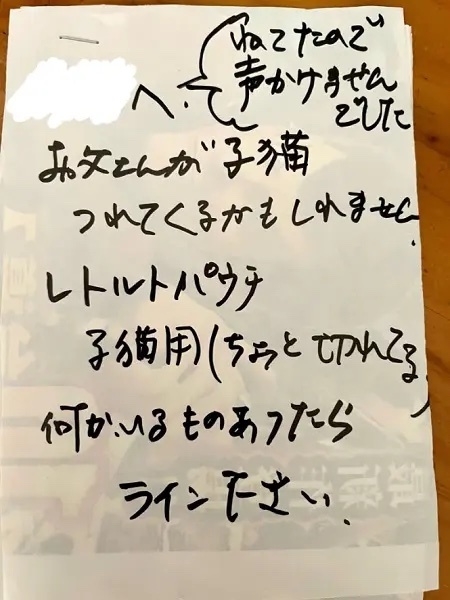 へ.
ねてたので
声かけません
でした
お父さんが子猫
つれてくるかもしれません.
レトルトパウチ
子猫用(ちょっと切れてる)
何かいるものあったら
ライン下さい.